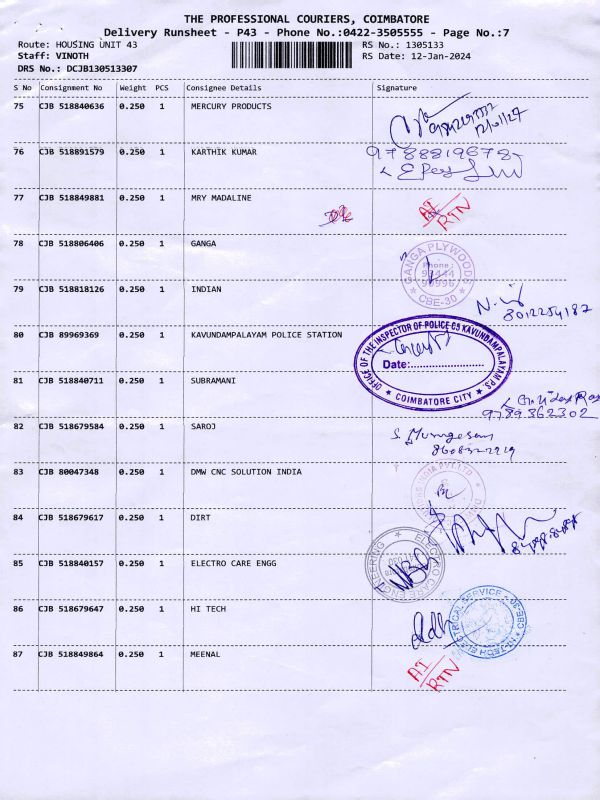 THE PROFESSIONAL COURIERS, COIMBATORE
Delivery Runsheet - P43 - Phone No.:0422-3505555 - Page No.:7
Route: HOUSING UNIT 43 RS No.: 1305133
Staff: VINOTH RS Date: 12-Jan-2024
DRS No.: DCJB130513307
S No Consignment No Weight PCS Consignee Details Signature
75 CJB 518840636 0.250 1 MERCURY PRODUCTS
76 CJB 518891579 0.250 1 KARTHIK KUMAR
77 CJB 518849881 0.250 1 MRY MADALINE AI
RTN
78 CJB 518806406 0.250 1 GANGA
GANGA PLYWOODS
Phone:
CBE-30
79 CJB 518818126 0.250 1 INDIAN
8012254187
80 CJB 89969369 0.250 1 KAVUNDAMPALAYAM POLICE STATION
OFFICE OF THE INSPECTOR OF POLICE C5 KAVUNDAMPALAYAM P.S.
Date:
COIMBATORE CITY
81 CJB 518840711 0.250 1 SUBRAMANI
9789362302
82 CJB 518679584 0.250 1 SAROJ
S. Murugesan
83 CJB 80047348 0.250 1 DMW CNC SOLUTION INDIA
INDIA PVT LTD
84 CJB 518679617 0.250 1 DIRT
85 CJB 518840157 0.250 1 ELECTRO CARE ENGG
86 CJB 518679647 0.250 1 HI TECH
HI-TECH ELECTRICAL SERVICE CBE-30
87 CJB 518849864 0.250 1 MEENAL AI
RTN